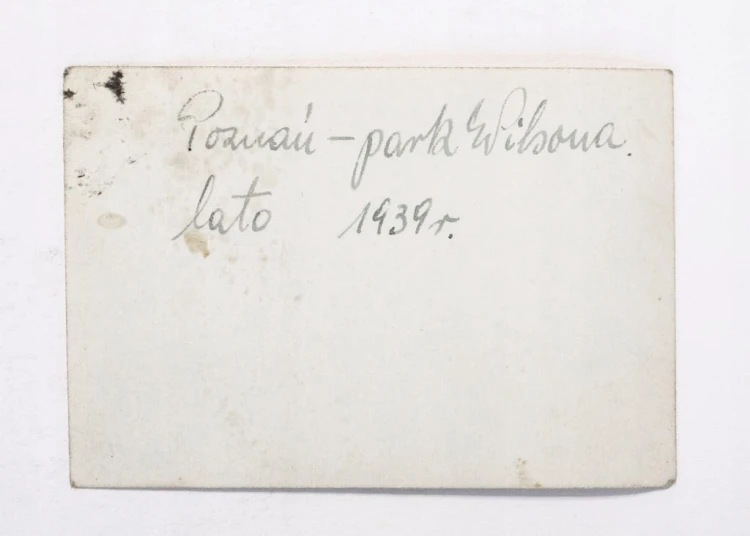 Poznań – park Wilsona.
lato 1939 r.